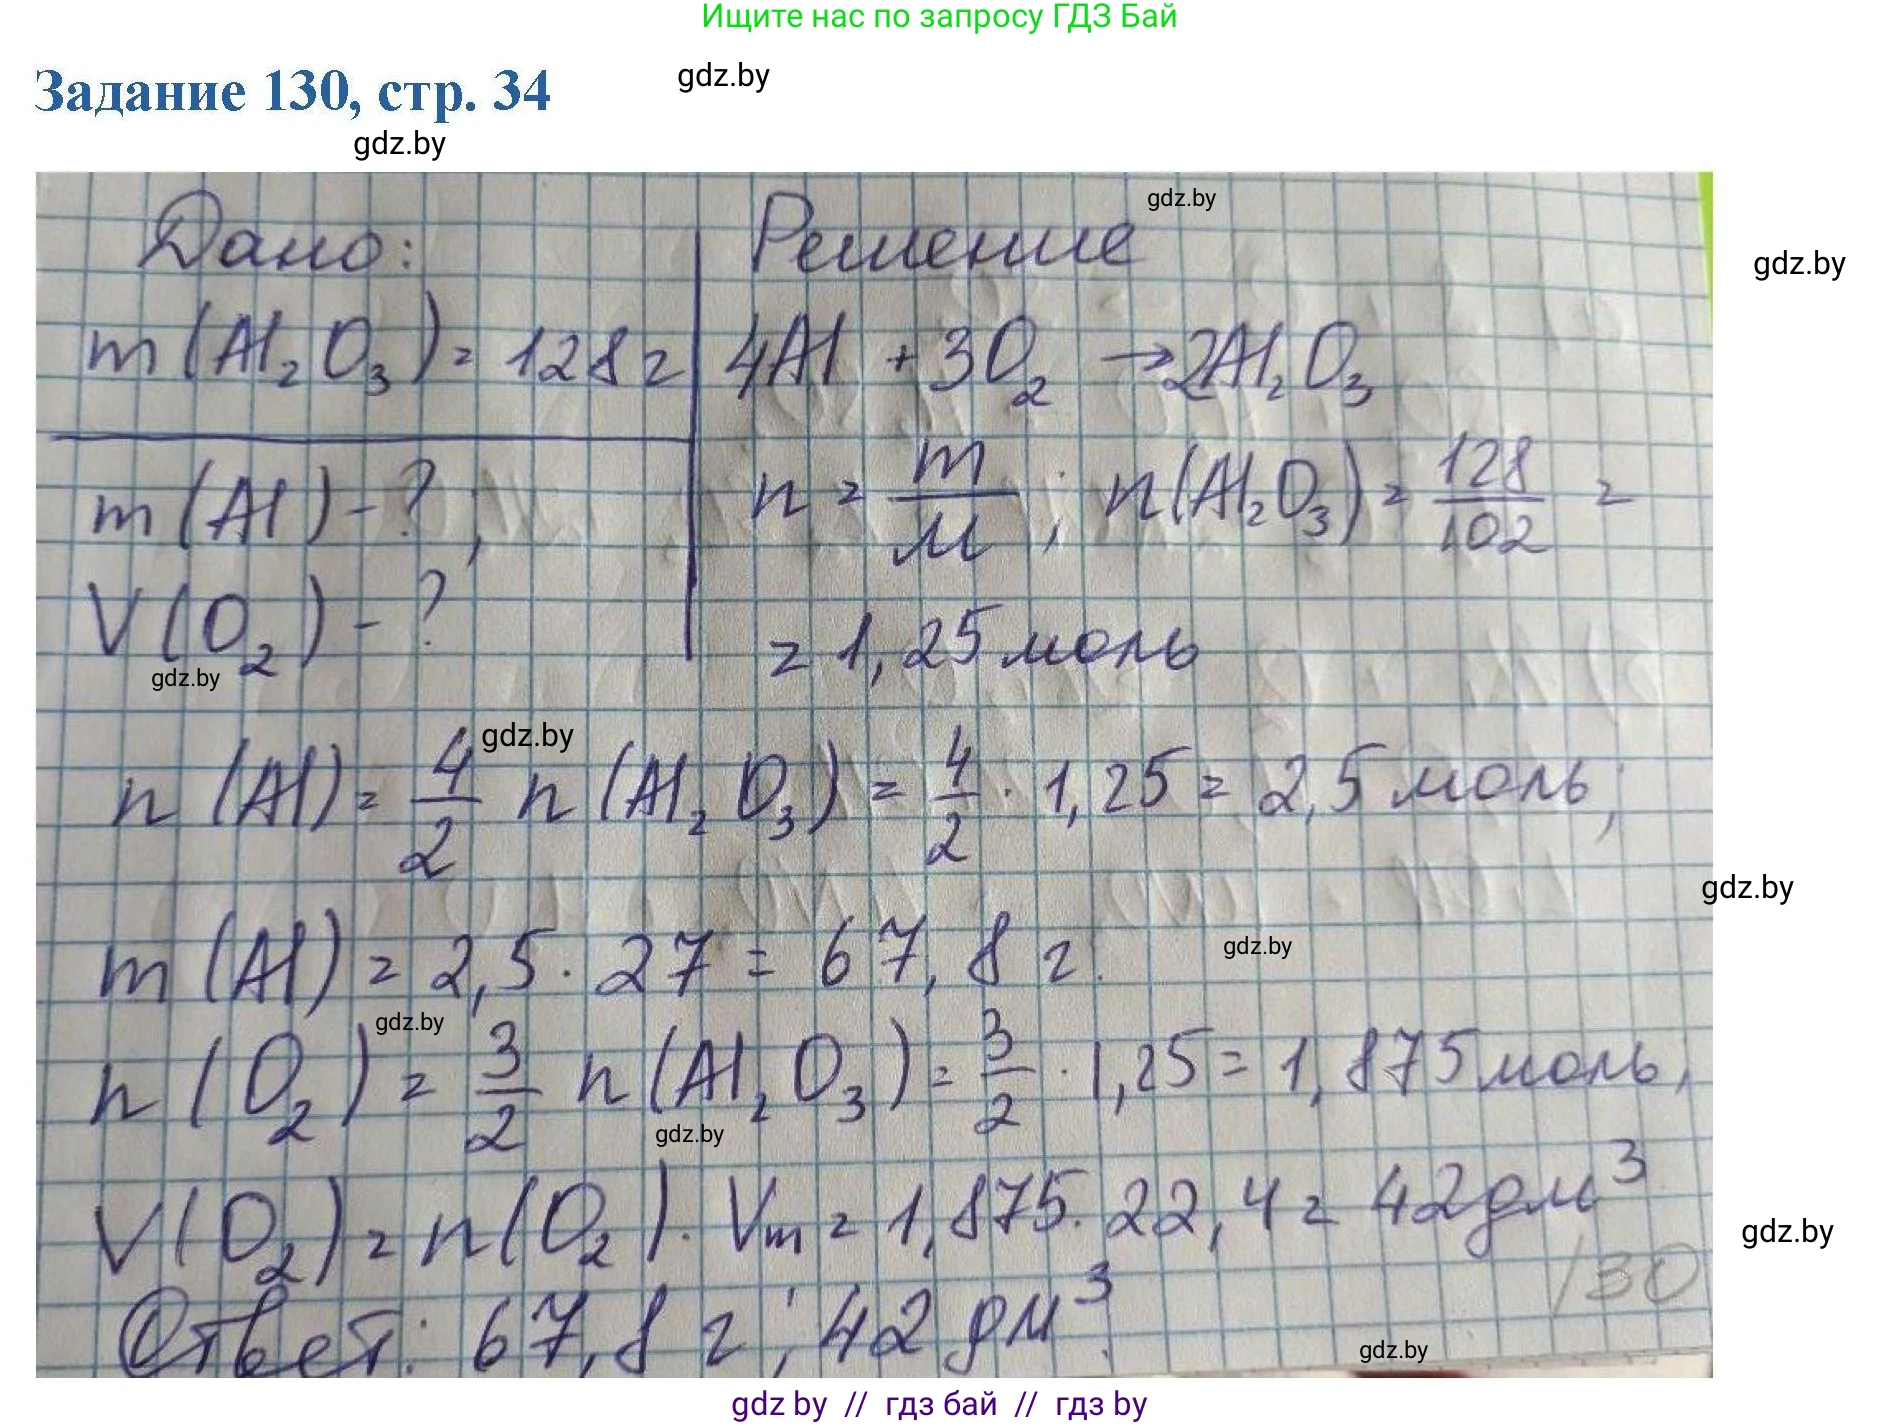 Ищите нас по запросу ГДЗ Бай
Задание 130, стр. 34
gdz.by
gdz.by
gdz.by
gdz.by
Дано:
m(Al₂O₃) = 128 г
m(Al) - ?;
V(O₂) - ?
gdz.by
Решение
4Al + 3O₂ → 2Al₂O₃
n = m/M; n(Al₂O₃) = 128/102 =
= 1,25 моль
gdz.by
n(Al) = 4/2 n(Al₂O₃) = 4/2 · 1,25 = 2,5 моль;
gdz.by
gdz.by
m(Al) = 2,5 · 27 = 67,8 г.
gdz.by
n(O₂) = 3/2 n(Al₂O₃) = 3/2 · 1,25 = 1,875 моль,
gdz.by
V(O₂) = n(O₂) · Vm = 1,875 · 22,4 = 42 дм³
gdz.by
130
Ответ: 67,8 г; 42 дм³.
gdz.by
gdz by // гдз бай // гдз by